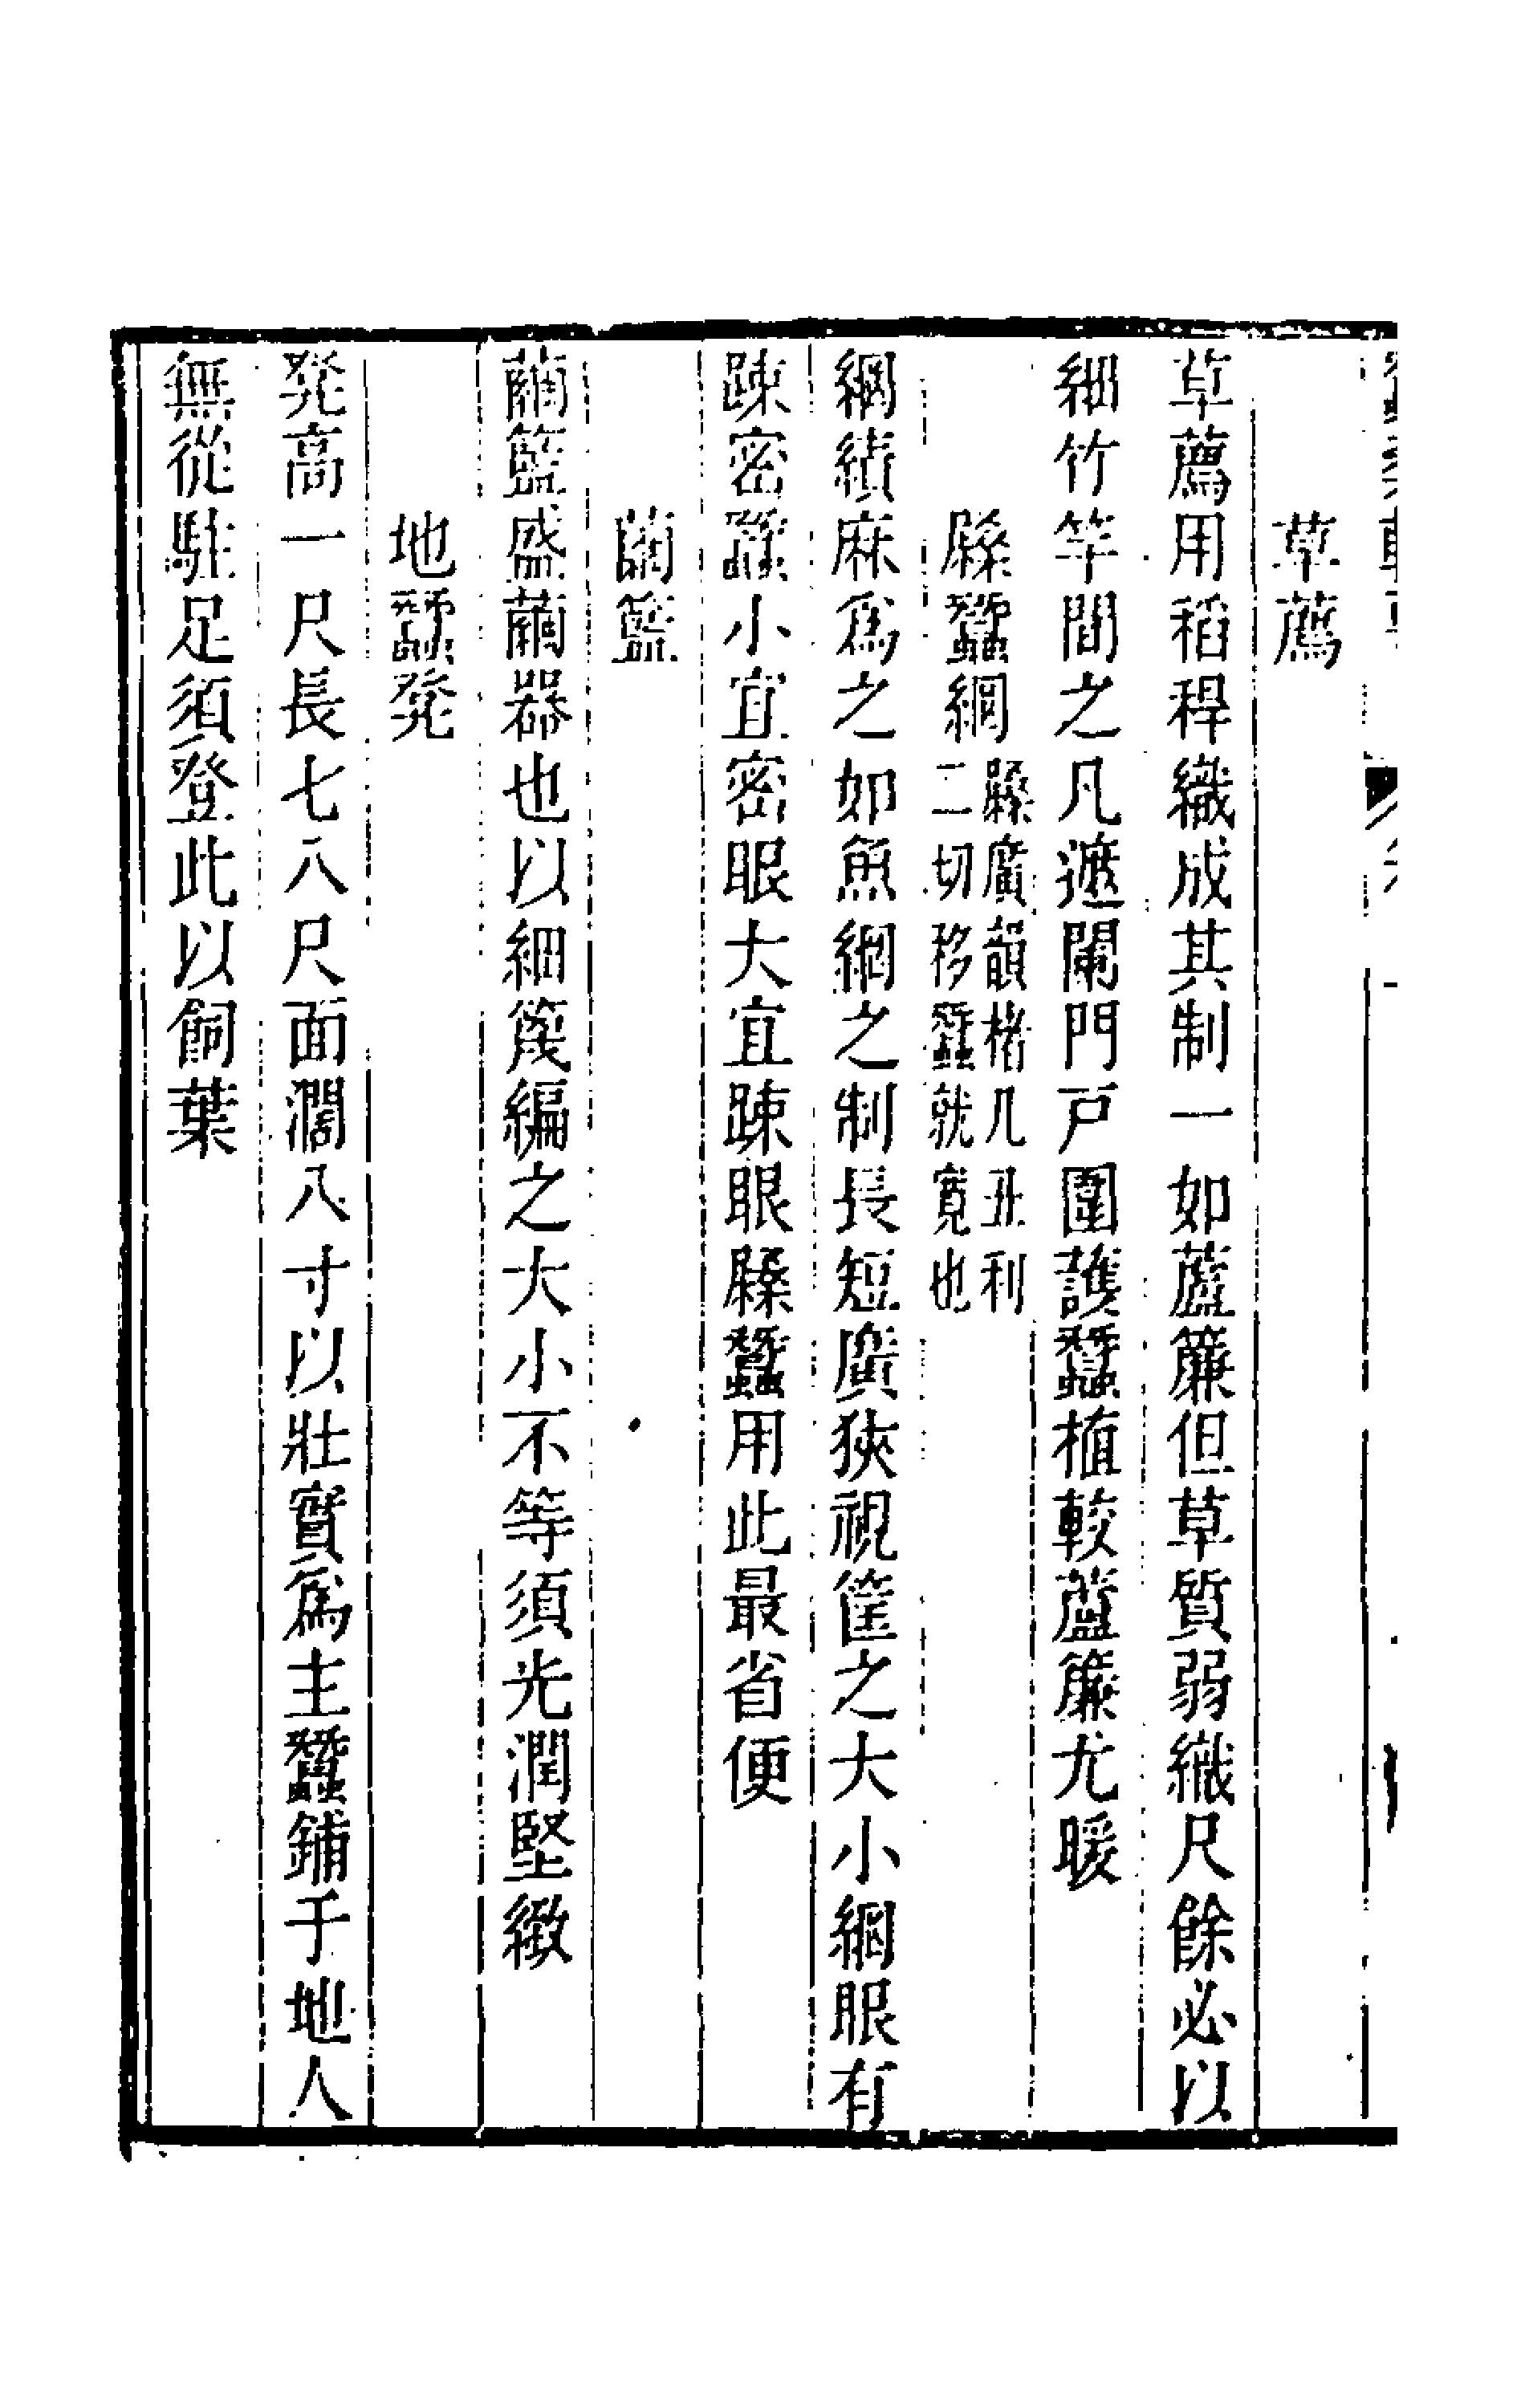 草薦
草薦用稻稈織成其制一如蘆簾但草質弱織尺餘必以
細竹竿間之凡遮闌門戸圍護蠶植較蘆簾尤暖
蠶網廣韻楮几丑利
二切移蠶就寬也
網績麻爲之如魚網之制長短廣狹視筐之大小網眼有
疎密蠶小宜密眼大宜疎眼蠶用此最省便
繭籃
繭籃盛繭器也以細篾編之大小不等須光潤堅緻
地蠶凳
凳高一尺長七八尺面濶八寸以壯實爲主蠶鋪于地人
無從駐足須登此以飼葉